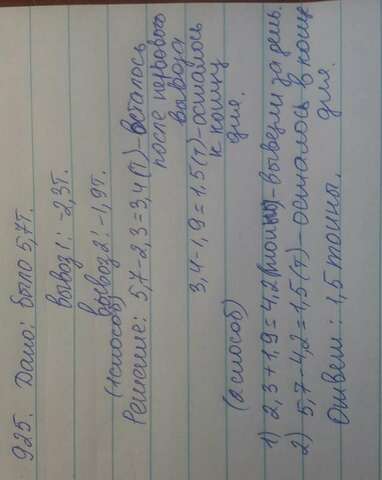 925. Дано: Было 5,7т.
Вывоз 1: -2,3т.
Вывоз 2: -1,9т.
(1способ)
Решение: 5,7-2,3=3,4(т)-осталось
после первового
вывоза
3,4-1,9=1,5(т)-осталось
к концу
дня.
(2 способ)
1) 2,3+1,9=4,2(тонны)-вывезли за день.
2) 5,7-4,2=1,5(т)-осталось в конце
дня.
Ответ: 1,5 тонны.